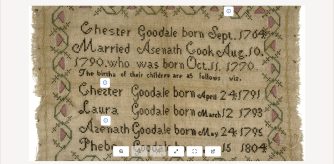 Chester Goodale born Sept. 1764
Married Asenath Cook Aug. 10.
1790. who was born Oct. 11. 1770.
The births of their children are as follows viz.
Chester Goodale born April 24 1791
Laura Goodale born March 12 1793
Azenath Goodale born May 24 1795
Phebe born 15 1804